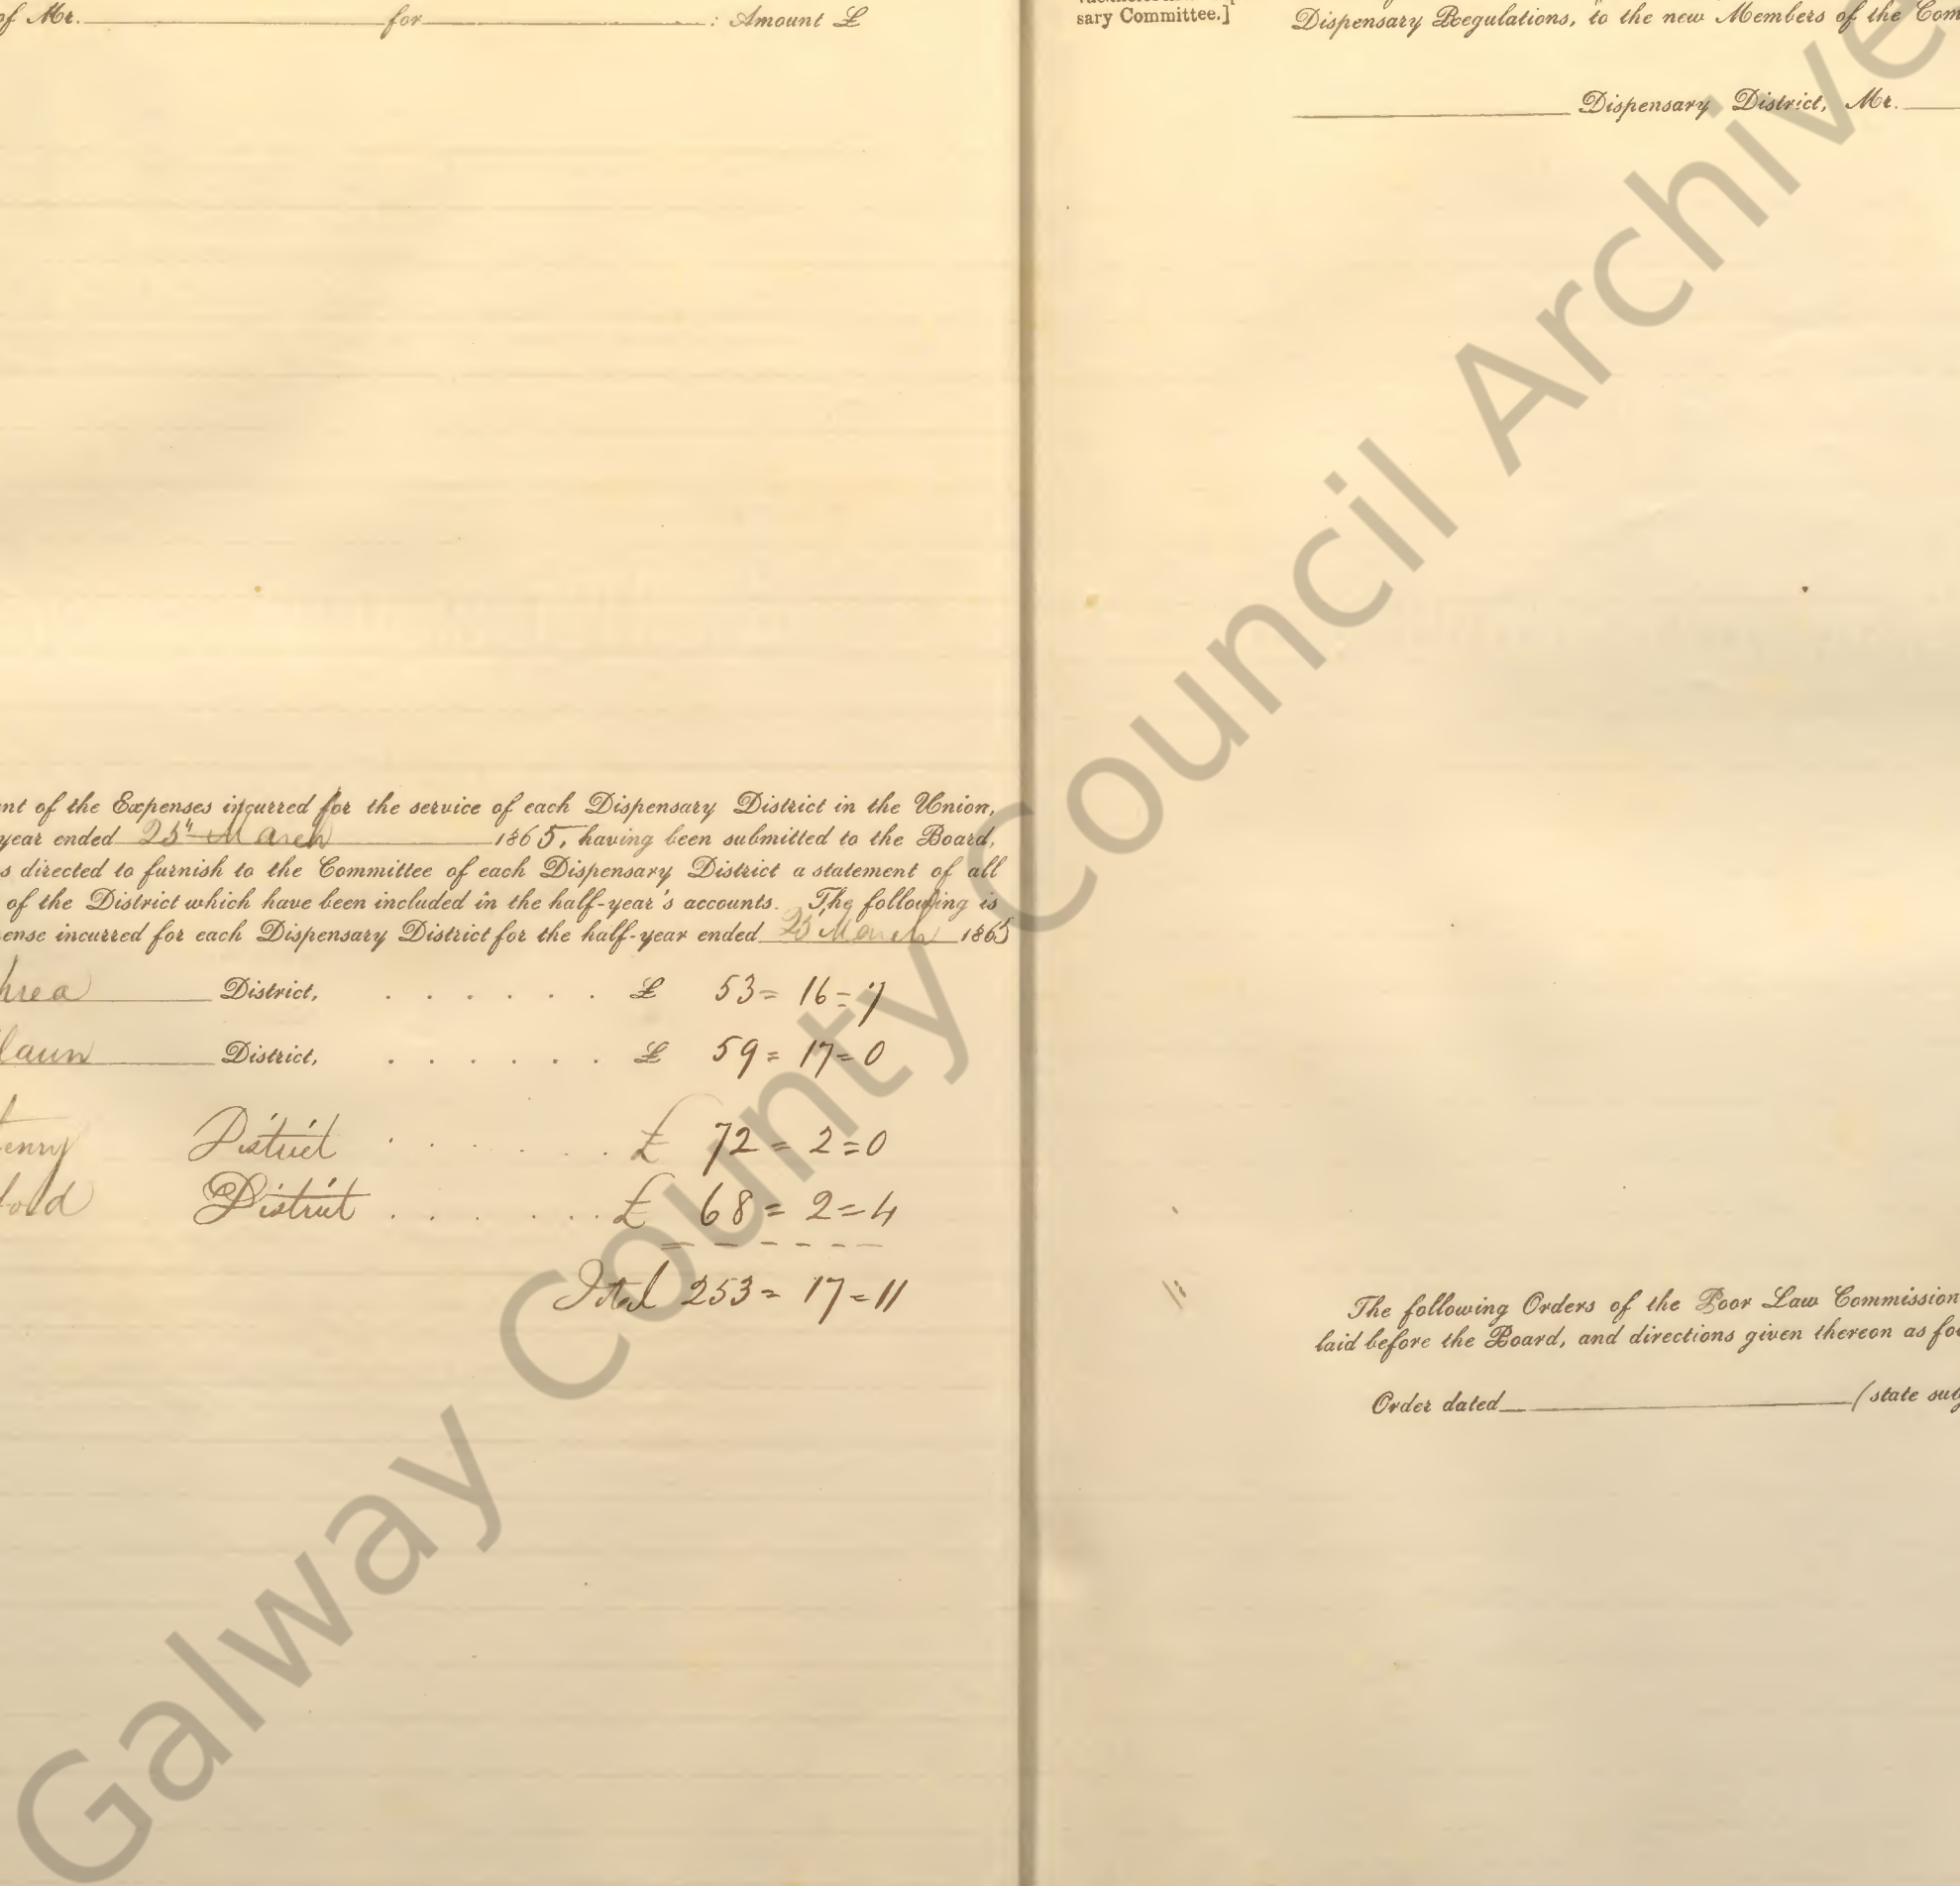 of Mr. for : Amount £
nt of the Expenses incurred for the service of each Dispensary District in the Union,
year ended 25th March 1865, having been submitted to the Board,
s directed to furnish to the Committee of each Dispensary District a statement of all
of the District which have been included in the half-year's accounts. The following is
ense incurred for each Dispensary District for the half-year ended 25 March 1865
hrea District, . . . . . . £ 53 = 16 = 7
laun District, . . . . . . £ 59 = 17 = 0
enry District . . . . . £ 72 = 2 = 0
ford District . . . . . . £ 68 = 2 = 4
Total 253 = 17 = 11
sary Committee.]
Dispensary Regulations, to the new Members of the Com
Dispensary District, Mr.
The following Orders of the Poor Law Commission
laid before the Board, and directions given thereon as fo
Order dated (state sub
Galway County Council Archive